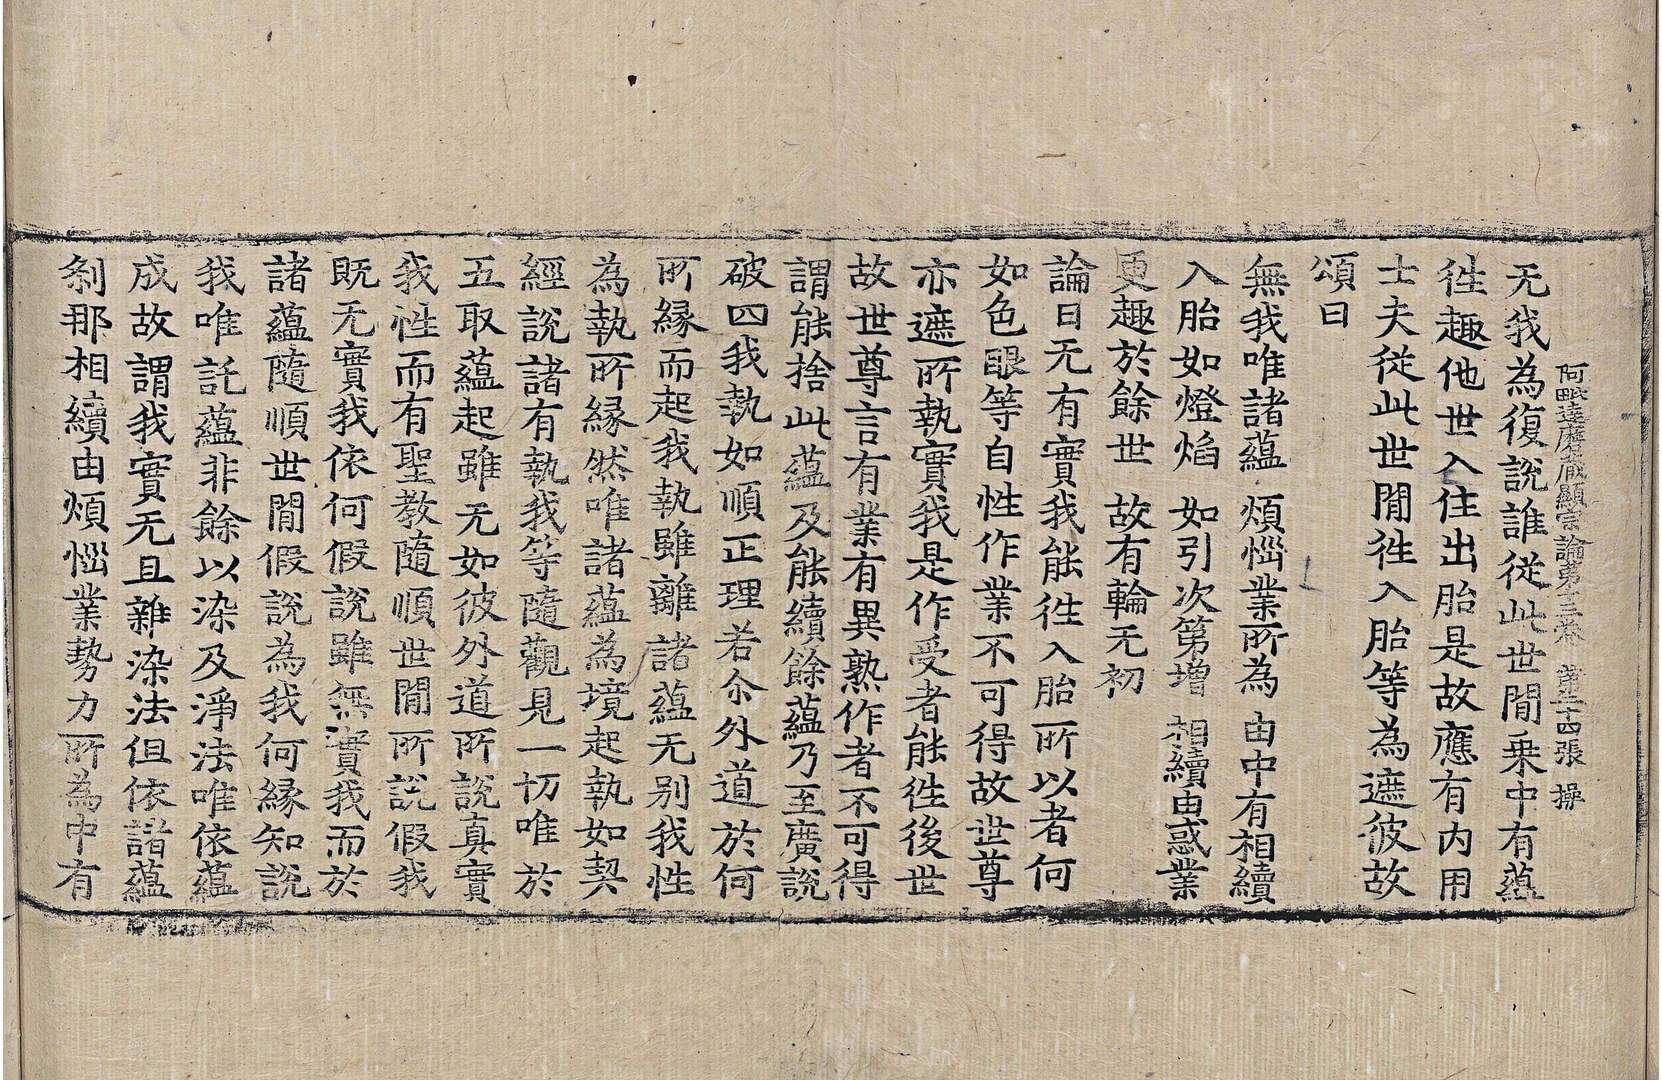 阿毗達磨藏顯宗論第十三卷 第二十四張 操
无我為復說誰從此世閒乗中有蘊
徃趣他世入住出胎是故應有內用
士夫從此世閒徃入胎等為遮彼故
頌曰
無我唯諸蘊 煩惱業所為 由中有相續
入胎如燈焰 如引次第增 相續由惑業
更趣於餘世 故有輪无初
論曰无有實我能徃入胎所以者何
如色眼等自性作業不可得故世尊
亦遮所執實我是作受者能徃後世
故世尊言有業有異熟作者不可得
謂能捨此蘊及能續餘蘊乃至廣說
破四我執如順正理若尒外道於何
所緣而起我執雖離諸蘊无別我性
為執所緣然唯諸蘊為境起執如契
經說諸有執我等隨觀見一切唯於
五取蘊起雖无如彼外道所說真實
我性而有聖教隨順世閒所說假我
既无實我依何假說雖無實我而於
諸蘊隨順世閒假說為我何緣知說
我唯託蘊非餘以染及淨法唯依蘊
成故謂我實无且雜染法但依諸蘊
剎那相續由煩惱業勢力所為中有